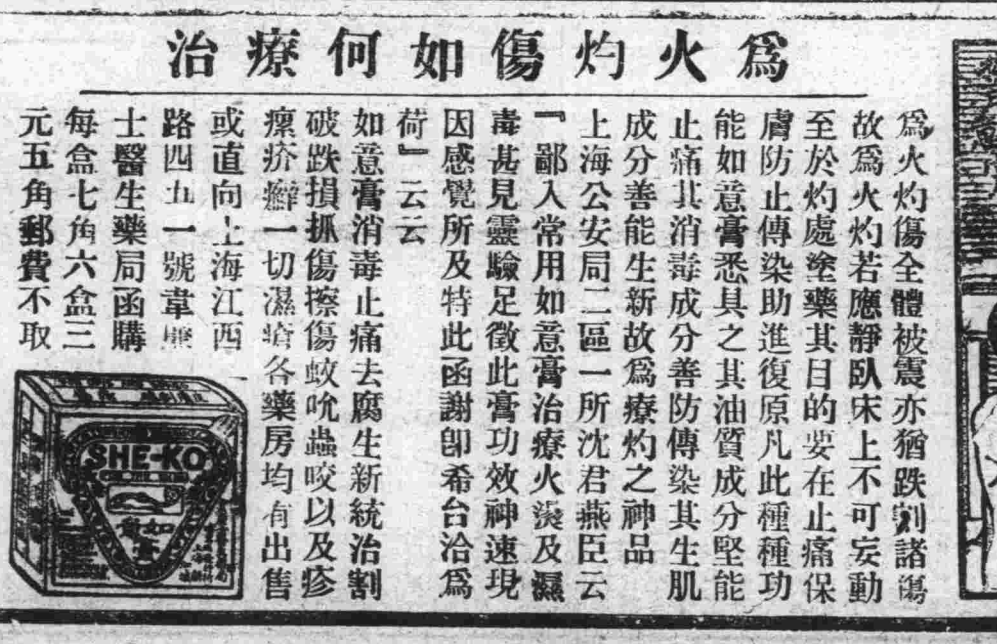 爲火灼傷如何療治
爲火灼傷全體被震亦猶跌割諸傷
故爲火灼若應靜臥床上不可妄動
至於灼處塗藥其目的要在止痛保
膚防止傳染助進復原凡此種種功
能如意膏悉具之其油質成分堅能
止痛其消毒成分善防傳染其生肌
成分善能生新故爲療灼之神品
上海公安局二區一所沈君燕臣云
『鄙人常用如意膏治療火燙及濕
毒甚見靈驗足徵此膏功效神速現
因感覺所及特此函謝卽希台洽爲
荷』云云
如意膏消毒止痛去腐生新統治割
破跌損抓傷擦傷蚊吮蟲咬以及疹
瘰疥癬一切濕瘡各藥房均有出售
或直向上海江西
路四五一號韋廉
士醫生藥局函購
每盒七角六盒三
元五角郵費不取
SHE-KO
如意膏